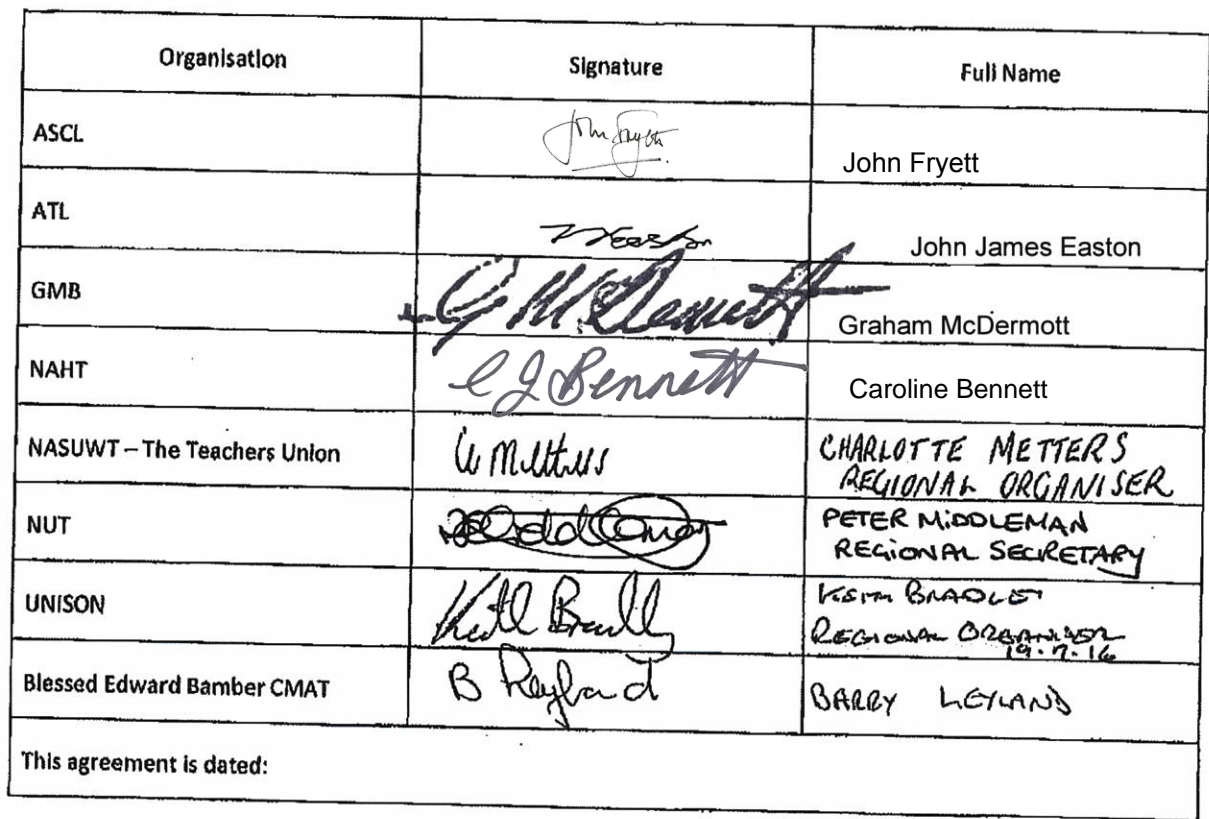 Organisation Signature Full Name
ASCL John Fryett John Fryett
ATL John James Easton
GMB G McDermott Graham McDermott
NAHT C J Bennett Caroline Bennett
NASUWT – The Teachers Union C Metters CHARLOTTE METTERS
REGIONAL ORGANISER
NUT PETER MIDDLEMAN
REGIONAL SECRETARY
UNISON Keith Bradley KEITH BRADLEY
REGIONAL ORGANISER
19.7.16
Blessed Edward Bamber CMAT B Leyland BARRY LEYLAND
This agreement is dated: